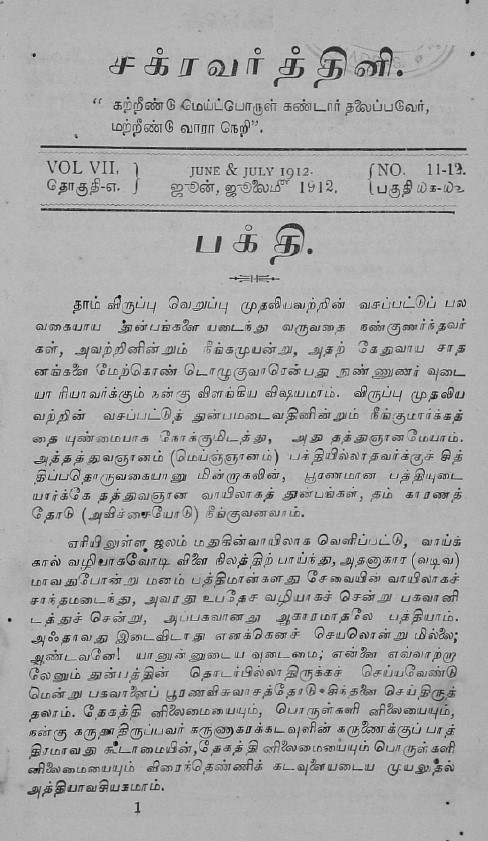 சக்ரவர்த்தினி.
“ கற்றீண்டு மெய்ப்பொருள் கண்டார் தலைப்படுவேர்,
மற்றீண்டு வாரா நெறி”.
VOL VII. JUNE & JULY 1912. NO. 11-12.
தொகுதி-எ. ஜூன், ஜுலைமீ 1912. பகுதி ௰௧-௰௨
பக்தி.
தாம் விருப்பு வெறுப்பு முதலியவற்றின் வசப்பட்டுப் பல
வகையாய துன்பங்களை யடைந்து வருவதை நன்குணர்ந்தவர்
கள், அவற்றினின்றும் நீங்கமுயன்று, அதற் கேதுவாய சாத
னங்களை மேற்கொண் டொழுகுவாரென்பது நுண்ணுணர் வுடை
யா ரியாவர்க்கும் நன்கு விளங்கிய விஷயமாம். விருப்பு முதலிய
வற்றின் வசப்பட்டுத் துன்பமடைவதினின்றும் நீங்குமார்க்கத்
தை யுண்மையாக நோக்குமிடத்து, அது தத்துஞானமேயாம்.
அத்தத்துவஞானம் (மெய்ஞ்ஞானம்) பக்தியில்லாதவர்க்குச் சித்
திப்பதொருவகையானு மின்றாகலின், பூரணமான பத்தியுடை
யார்க்கே தத்துவஞான வாயிலாகத் துன்பங்கள், தம் காரணத்
தோடு (அவிச்சையோடு) நீங்குவனவாம்.
ஏரியிலுள்ள ஜலம் மதுகின்வாயிலாக வெளிப்பட்டு, வாய்க்
கால் வழியாகவோடி விளை நிலத்திற் பாய்ந்து, அதனாகார (வடிவ)
மாவதுபோன்று மனம் பத்திமான்களது சேவையின் வாயிலாகச்
சாந்தமடைந்து, அவரது உபதேச வழியாகச் சென்று பகவானி
டத்துச் சென்று, அப்பகவானது ஆகாரமாதலே பத்தியாம்.
அஃதாவது இடைவிடாது எனக்கெனச் செயலொன்று மில்லை;
ஆண்டவனே! யானுன்னுடைய வுடைமை; என்னை எவ்வாற்றா
லேனும் துன்பத்தின் தொடர்பில்லாதிருக்கச் செய்யவேண்டு
மென்று பகவானைப் பூரணவிசுவாசத்தோடு சிந்தனை செய்திருத்
தலாம். தேகத்தி னிலைமையையும், பொருள்களி னிலையையும்,
நன்கு கருதாதிருப்பவர் கருணாகரக்கடவுளின் கருணைக்குப் பாத்
திரமாவது கூடாமையின், தேகத்தி னிலைமையையும் பொருள்களி
னிலைமையையும் விரைந்தெண்ணிக் கடவுளையடைய முயலுதல்
அத்தியாவசியகமாம்.
1